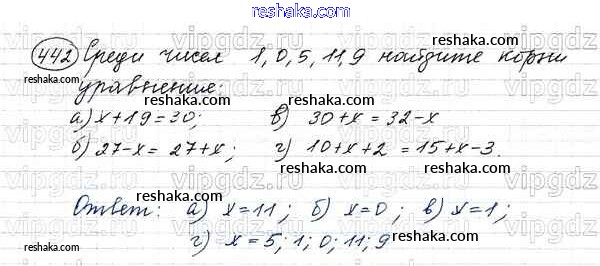 reshaka.com
442 Среди чисел 1, 0, 5, 11, 9 найдите корни
reshaka.com
reshaka.com
уравнение:
reshaka.com
reshaka.com
а) x+19=30; в) 30+x=32-x
б) 27-x=27+x; г) 10+x+2=15+x-3.
reshaka.com
reshaka.com
Ответ: а) x=11; б) x=0; в) x=1;
reshaka.com
г) x=5; 1; 0; 11; 9
reshaka.com
reshaka.com